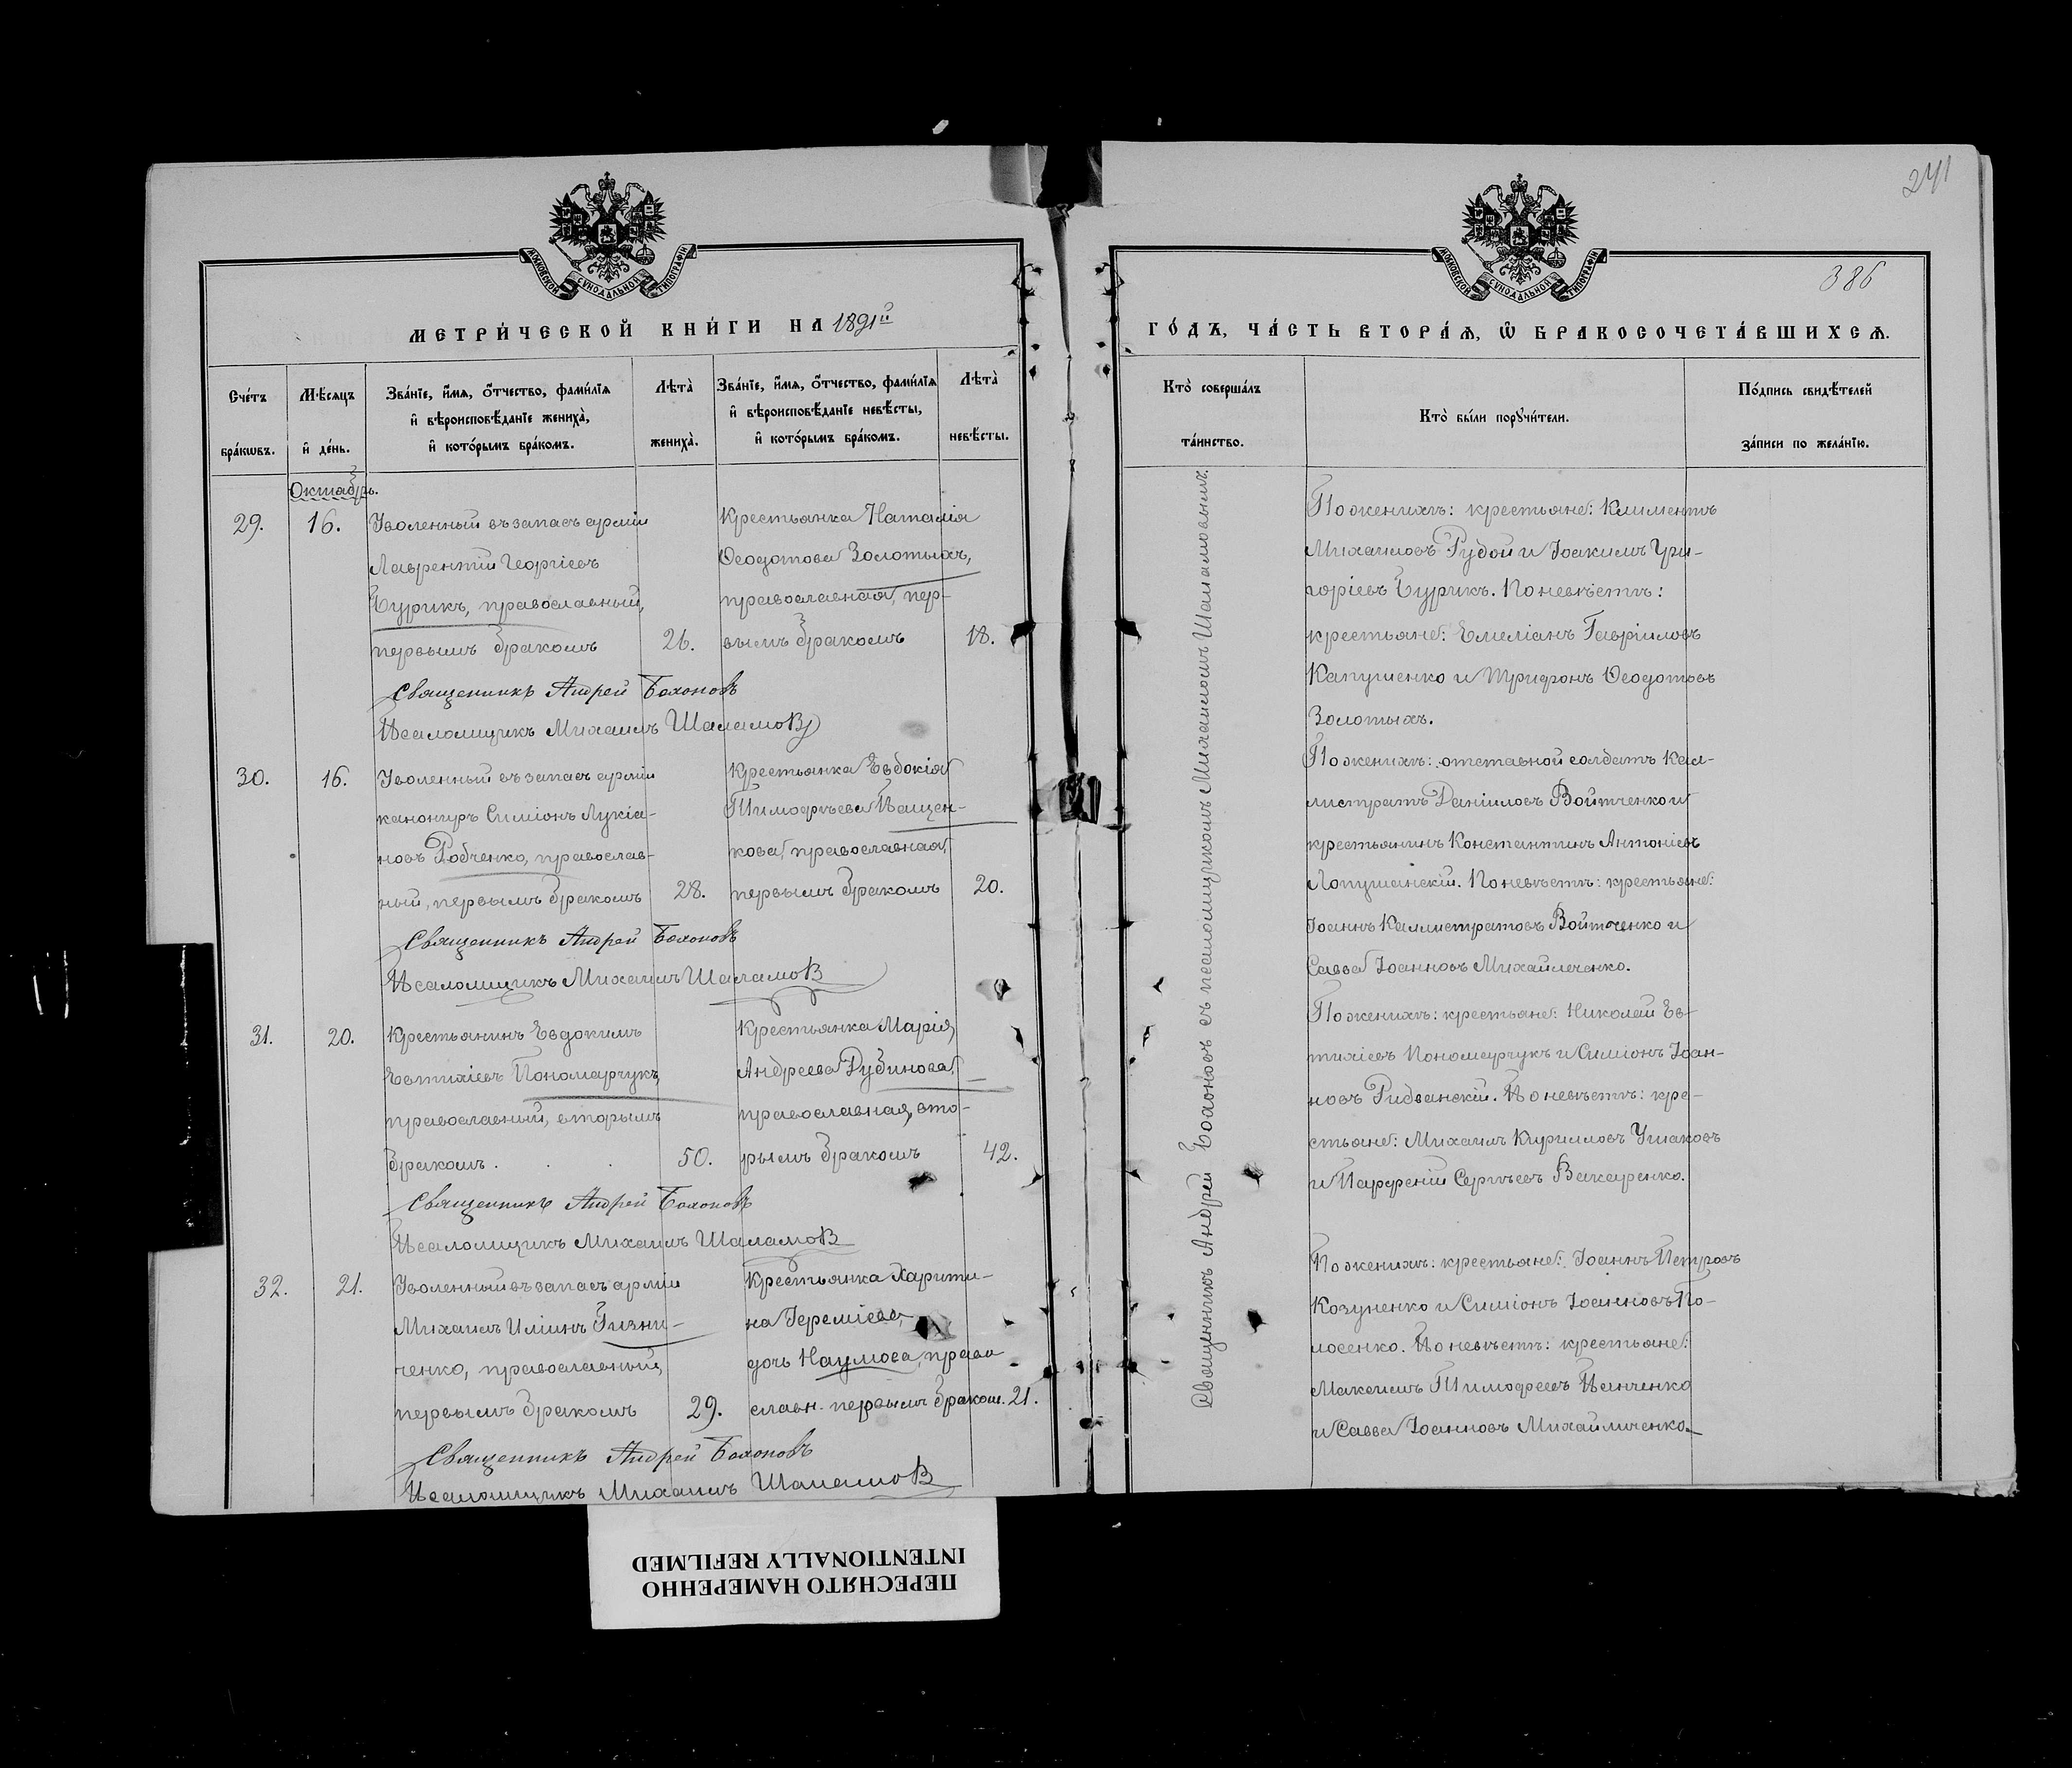 241
МОСКОВСКОЙ СѴНОДАЛЬНОЙ ТИПОГРАФІИ
МЕТРИ́ЧЕСКОЙ КНИ́ГИ НА 1891й
Сче́тъ бра́кωвъ.
Мѣ́сяцъ и҆ де́нь.
Зва́нїе, и҆́мѧ, ѻ҆́тчество, фами́лїѧ
и҆ вѣроисповѣ́данїе жениха̀,
и҆ кото́рымъ бра́комъ.
Лѣта̀ жениха̀.
Зва́нїе, и҆́мѧ, ѻ҆́тчество, фами́лїѧ
и҆ вѣроисповѣ́данїе невѣ́сты,
и҆ кото́рымъ бра́комъ.
Лѣта̀ невѣ́сты.
Октябрь.
29.
16.
Уволенный въ запасъ арміи
Лаврентій Георгіевъ
Бурикъ, православный,
первымъ бракомъ
26.
Крестьянка Наталія
Ѳеодотова Золотыхъ,
православная, пер-
вымъ бракомъ
18.
Священникъ Андрей Бохоновъ
Псаломщикъ Михаилъ Шаламовъ
30.
16.
Уволенный въ запасъ арміи
канониръ Симіонъ Лукіа-
новъ Рябченко, православ-
ный, первымъ бракомъ
28.
Крестьянка Евдокія
Тимофѣева Пащен-
кова, православная,
первымъ бракомъ
20.
Священникъ Андрей Бохоновъ
Псаломщикъ Михаилъ Шаламовъ
31.
20.
Крестьянинъ Евдокимъ
Евтихіевъ Пономарчукъ,
православный, вторымъ
бракомъ . . .
50.
Крестьянка Марія
Андреева Рубинова,
православная, вто-
рымъ бракомъ
42.
Священникъ Андрей Бохоновъ
Псаломщикъ Михаилъ Шаламовъ
32.
21.
Уволенный въ запасъ арміи
Михаилъ Иліинъ Гизни-
ченко, православный,
первымъ бракомъ
29.
Крестьянка Харити-
на Іереміева,
дочь Наумова, право
славн. первымъ браком. 21.
Священникъ Андрей Бохоновъ
Псаломщикъ Михаилъ Шаламовъ
МОСКОВСКОЙ СѴНОДАЛЬНОЙ ТИПОГРАФІИ
386
ГО́ДЪ, ЧА́СТЬ ВТОРА́Ѧ, Ѡ҆ БРАКОСОЧЕТА́ВШИХСѦ.
Кто̀ соверша́лъ та́инство.
Кто̀ бы́ли порꙋчи́тели.
По́дпись свидѣ́телей за́писи по жела́нїю.
Священникъ Андрей Бохоновъ съ псаломщикомъ Михаиломъ Шаламовымъ.
По женихѣ: крестьяне: Климентъ
Михаиловъ Рудой и Іоакимъ Гри-
горіевъ Бурикъ. По невѣстѣ:
крестьяне: Емеліанъ Гавріиловъ
Капушенко и Трифонъ Ѳеодотовъ
Золотыхъ.
По женихѣ: отставной солдатъ Кал-
листратъ Даніиловъ Войтченко и
крестьянинъ Константинъ Антоніевъ
Лопушанскій. По невѣстѣ: крестьяне:
Іоаннъ Каллистратовъ Войтченко и
Савва Іоанновъ Михайличенко.
По женихѣ: крестьяне: Николай Ев-
тихіевъ Пономарчукъ и Симіонъ Іоан-
новъ Ридванскій. По невѣстѣ: кре-
стьяне: Михаилъ Кирилловъ Ушаковъ
и Парфеній Сергѣевъ Вакаренко.
По женихѣ: крестьяне: Іоаннъ Петровъ
Козуненко и Симіонъ Іоанновъ По-
лосенко. По невѣстѣ: крестьяне:
Максимъ Тимофеевъ Панченко
и Савва Іоанновъ Михайличенко.
ПЕРЕСНЯТО НАМЕРЕННО
INTENTIONALLY REFILMED